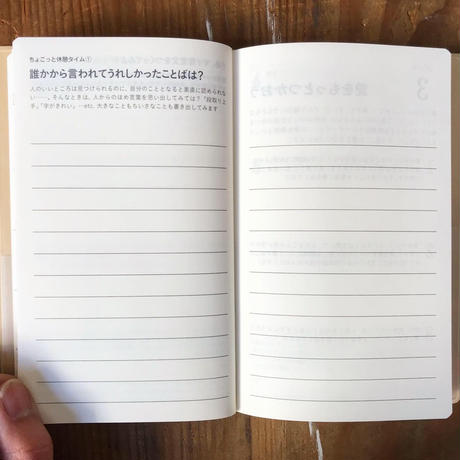 ちょこっと休憩タイム①
誰かから言われてうれしかったことばは？
人のいいところは見つけられるのに、自分のこととなると素直に認められな
い……。そんなときは、人からのほめ言葉を思い出してみては？「段取り上
手」「字がきれい」…etc. 大きなこともちいさなことも書き出してみます